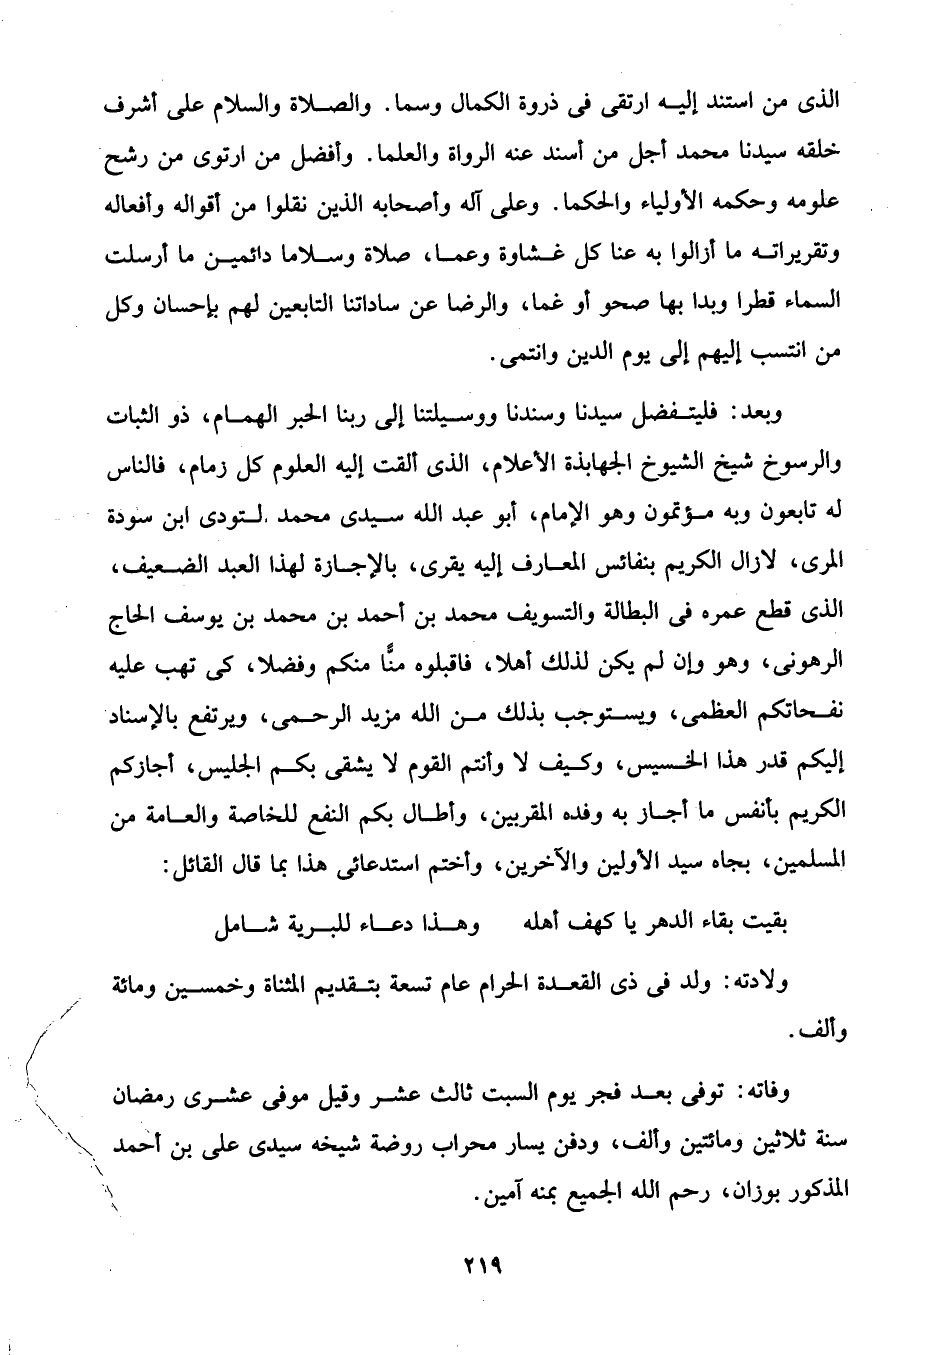 الذى من استند إليه ارتقى فى ذروة الكمال وسما. والصلاة والسلام على أشرف
خلقه سيدنا محمد أجل من أسند عنه الرواة والعلما. وأفضل من ارتوى من رشح
علومه وحكمه الأولياء والحكما. وعلى آله وأصحابه الذين نقلوا من أقواله وأفعاله
وتقريراته ما أزالوا به عنا كل غشاوة وعما، صلاة وسلاما دائمين ما أرسلت
السماء قطرا وبدا بها صحو أو غما، والرضا عن ساداتنا التابعين لهم بإحسان وكل
من انتسب إليهم إلى يوم الدين وانتمى.
وبعد: فليتفضل سيدنا وسندنا ووسيلتنا إلى ربنا الحبر الهمام، ذو الثبات
والرسوخ شيخ الشيوخ الجهابذة الأعلام، الذى ألقت إليه العلوم كل زمام، فالناس
له تابعون وبه مؤتمون وهو الإمام، أبو عبد الله سيدى محمد التودى ابن سودة
المرى، لازال الكريم بنفائس المعارف إليه يقرى، بالإجازة لهذا العبد الضعيف،
الذى قطع عمره فى البطالة والتسويف محمد بن أحمد بن محمد بن يوسف الحاج
الرهونى، وهو وإن لم يكن لذلك أهلا، فاقبلوه منًّا منكم وفضلا، كى تهب عليه
نفحاتكم العظمى، ويستوجب بذلك من الله مزيد الرحمى، ويرتفع بالإسناد
إليكم قدر هذا الخسيس، وكيف لا وأنتم القوم لا يشقى بكم الجليس، أجازكم
الكريم بأنفس ما أجاز به وفده المقربين، وأطال بكم النفع للخاصة والعامة من
المسلمين، بجاه سيد الأولين والآخرين، وأختم استدعائى هذا بما قال القائل:
بقيت بقاء الدهر يا كهف أهله وهذا دعاء للبرية شامل
ولادته: ولد فى ذى القعدة الحرام عام تسعة بتقديم المثناة وخمسين ومائة
وألف.
وفاته: توفى بعد فجر يوم السبت ثالث عشر وقيل موفى عشرى رمضان
سنة ثلاثين ومائتين وألف، ودفن يسار محراب روضة شيخه سيدى على بن أحمد
المذكور بوزان، رحم الله الجميع بمنه آمين.
٢١٩